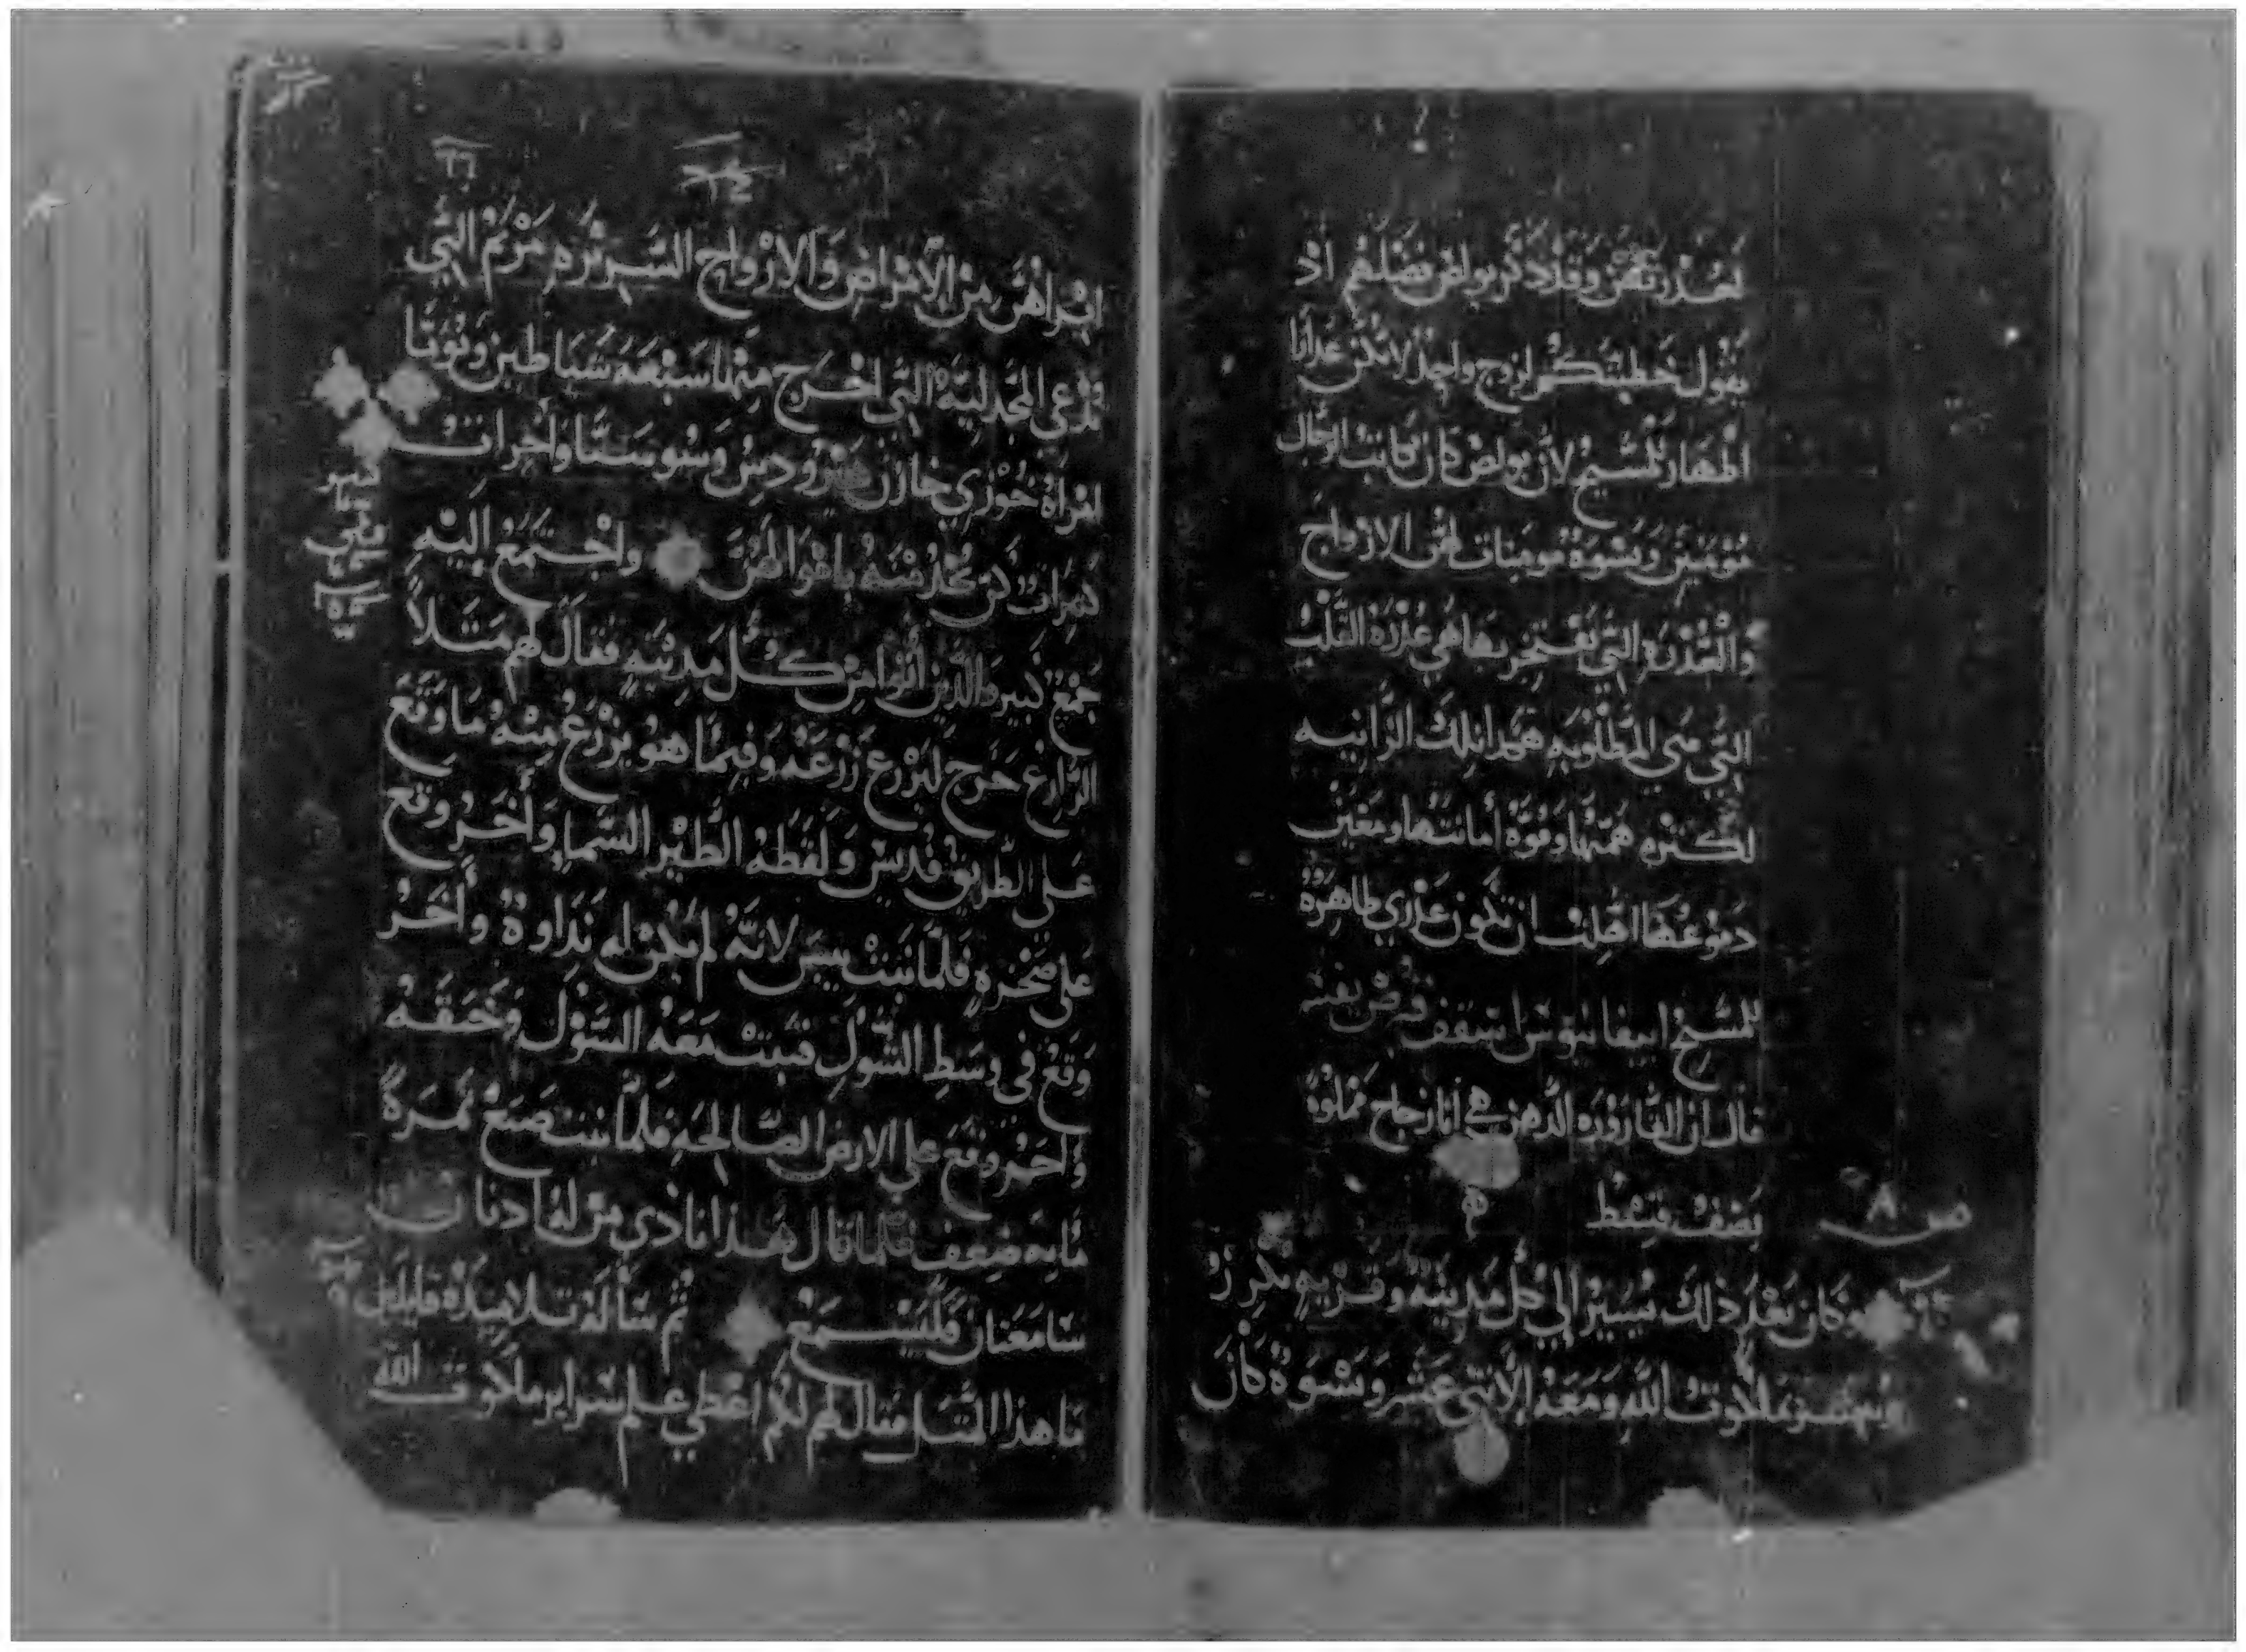 بعذرتهن وقد ذكر بولص فضلهم اذ
يقول خطبتكم لزوج واحد لاتكن عدانا
اطهار للمسيح لان بولص كان كاتب الرجال
مومنين ونسوة مومنات لهن الازواج
والعذرة التي يفتخر بها هي عذرة القلب
التي هي المطلوبه هكدا تلك الزانيه
لكثرة همتها وقوة أمانتها ومعين
دموعها اهلت ان تكون عذري طاهرة
للمسيح ابيفانيوس اسقف قبرص
قال ان القارورة الدهن هي انا زجاج مملوة
نصف قسط
ص ٨
وكان بعد ذلك يسير الي كل مدينة وقرية يكرز
ويبشر بملكوت الله ومعه الاثني عشر ونسوة كان
٦٦
ابراهن من الامراض والارواح الشريره مريم التي
تدعي المجدلية التي اخرج منها سبعة شياطين ويونا
امراة خوزي خازن هيرودس وسوسنا وأخرات
كثيرات كن يخدمنه باموالهن واجتمع إليه
جمع كبير والذين أتوا من كل مدينه فقال لهم مثلاً
الزارع خرج ليزرع زرعه وفيما هو يزرع منه ما وقع
على الطريق فديس ولقطه الطير السماء وأخر وقع
على صخره فلما نبت يبس لانه لم يكن له نداوة وأخر
وقع في وسط الشول فنبت معه الشول وخنقه
واخر وقع علي الارض الصالحه فلما نبت صنع ثمرة
مايه ضعف فلما قال هذا نادي من له ادنان
سامعتان فليسمع ثم سأله تلاميذه قايلين
ما هذا المثل فقال لهم لكم اعطي علم سراير ملكوت الله